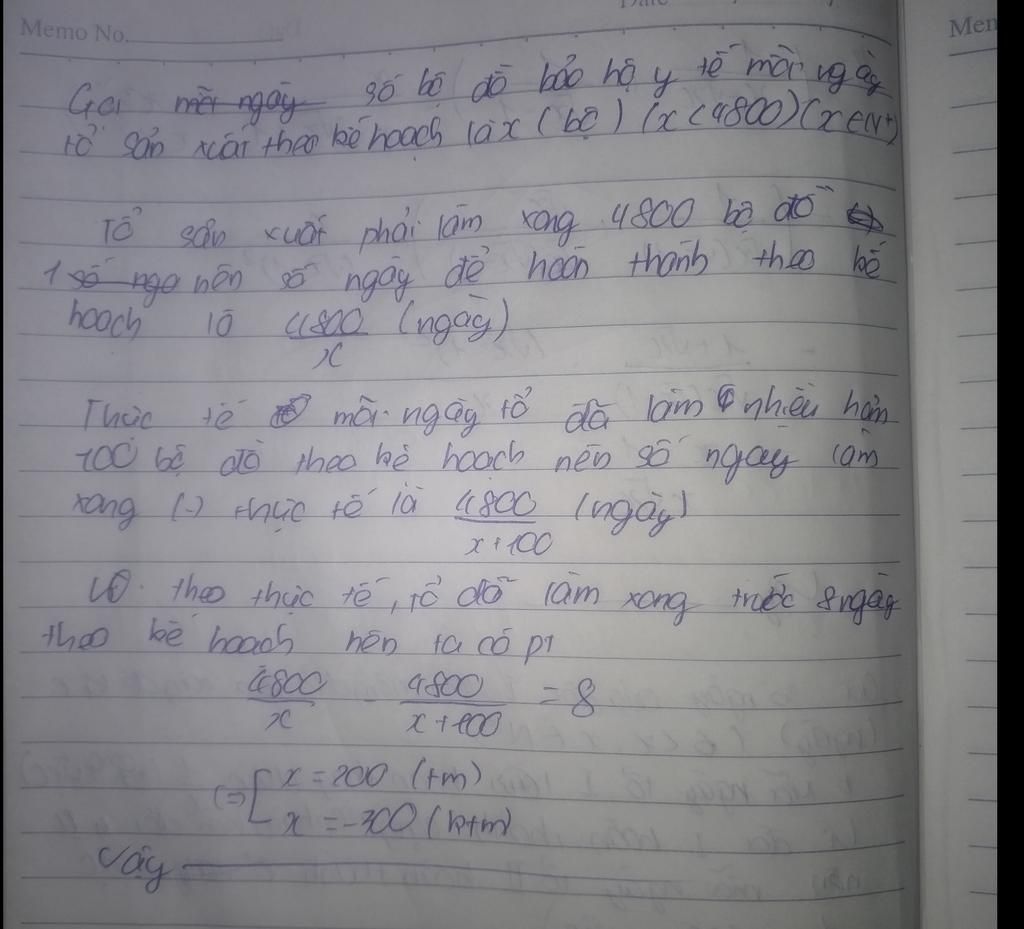 Memo No.
Gọi mỗi ngày số bộ đồ bảo hộ y tế mỗi ngày
tổ sản xuất theo kế hoạch là x (bộ) (x<4800)(x∈N*)
Tổ sản xuất phải làm xong 4800 bộ đồ
1 số nga nên số ngày để hoàn thành theo kế
hoạch là 4800/x (ngày)
Thực tế mỗi ngày tổ đã làm nhiều hơn
100 bộ đồ theo kế hoạch nên số ngày làm
xong (-) thực tế là 4800/x+100 (ngày)
Vì theo thực tế, tổ đã làm xong trước 8 ngày
theo kế hoạch nên ta có pt
4800/x - 4800/x+100 = 8
(=) [ x = 200 (tm)
x = -300 (ktm)
Vậy
Men